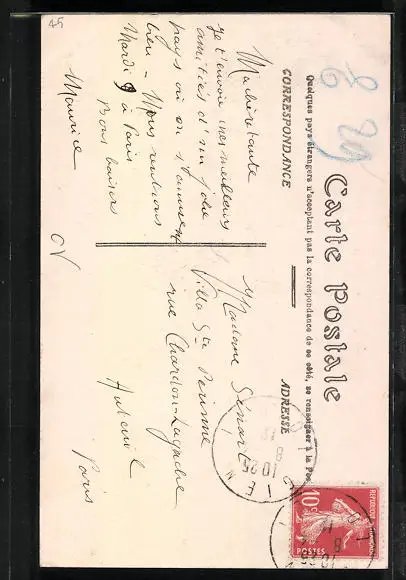 45
Carte Postale
Quelques pays étrangers n'acceptant pas la correspondance de ce côté, se renseigner à la Pos
CORRESPONDANCE
ADRESSE
Ma chère tante
Je t'envoie mes meilleures
amitiés d'un joli
pays où on s'amuse
bien. Nous rentrons
Mardi 9 à Paris
Bons baisers
Maurice
Madame Sénart
Villa Ste Périnne
rue Chardon-Lagache
Auteuil
Paris
10 25
8
RÉPUBLIQUE FRANÇAISE
10c
POSTES